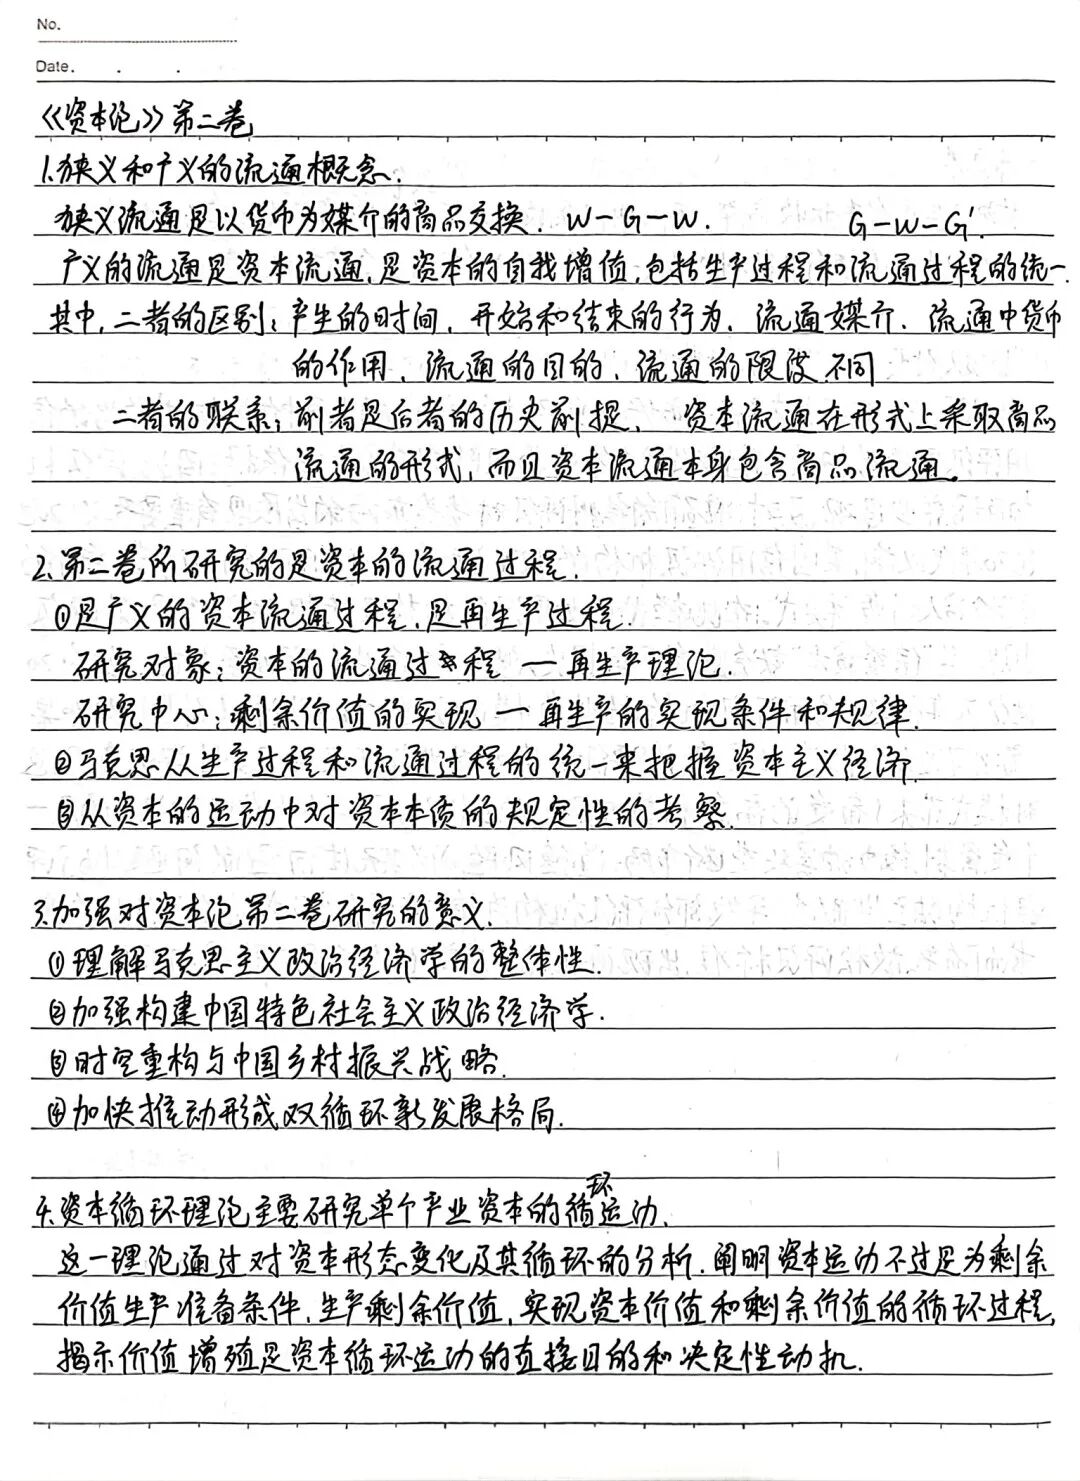 No.
Date. . .
《资本论》第二卷
1.狭义和广义的流通概念.
狭义流通是以货币为媒介的商品交换. W-G-W. G-W-G'.
广义的流通是资本流通,是资本的自我增值,包括生产过程和流通过程的统一.
其中,二者的区别:产生的时间、开始和结束的行为、流通媒介、流通中货币
的作用、流通的目的、流通的限度不同
二者的联系:前者是后者的历史前提. 资本流通在形式上采取商品
流通的形式,而且资本流通本身包含商品流通。
2.第二卷所研究的是资本的流通过程.
①是广义的资本流通过程,是再生产过程.
研究对象:资本的流通过程 — 再生产理论.
研究中心:剩余价值的实现 — 再生产的实现条件和规律.
②马克思从生产过程和流通过程的统一来把握资本主义经济.
③从资本的运动中对资本本质的规定性的考察.
3.加强对资本论第二卷研究的意义.
①理解马克思主义政治经济学的整体性.
②加强构建中国特色社会主义政治经济学.
③时空重构与中国乡村振兴战略.
④加快推动形成双循环新发展格局.
4.资本循环理论主要研究单个产业资本的循环运动.
这一理论通过对资本形态变化及其循环的分析.阐明资本运动不过是为剩余
价值生产准备条件,生产剩余价值,实现资本价值和剩余价值的循环过程,
揭示价值增殖是资本循环运动的直接目的和决定性动机.